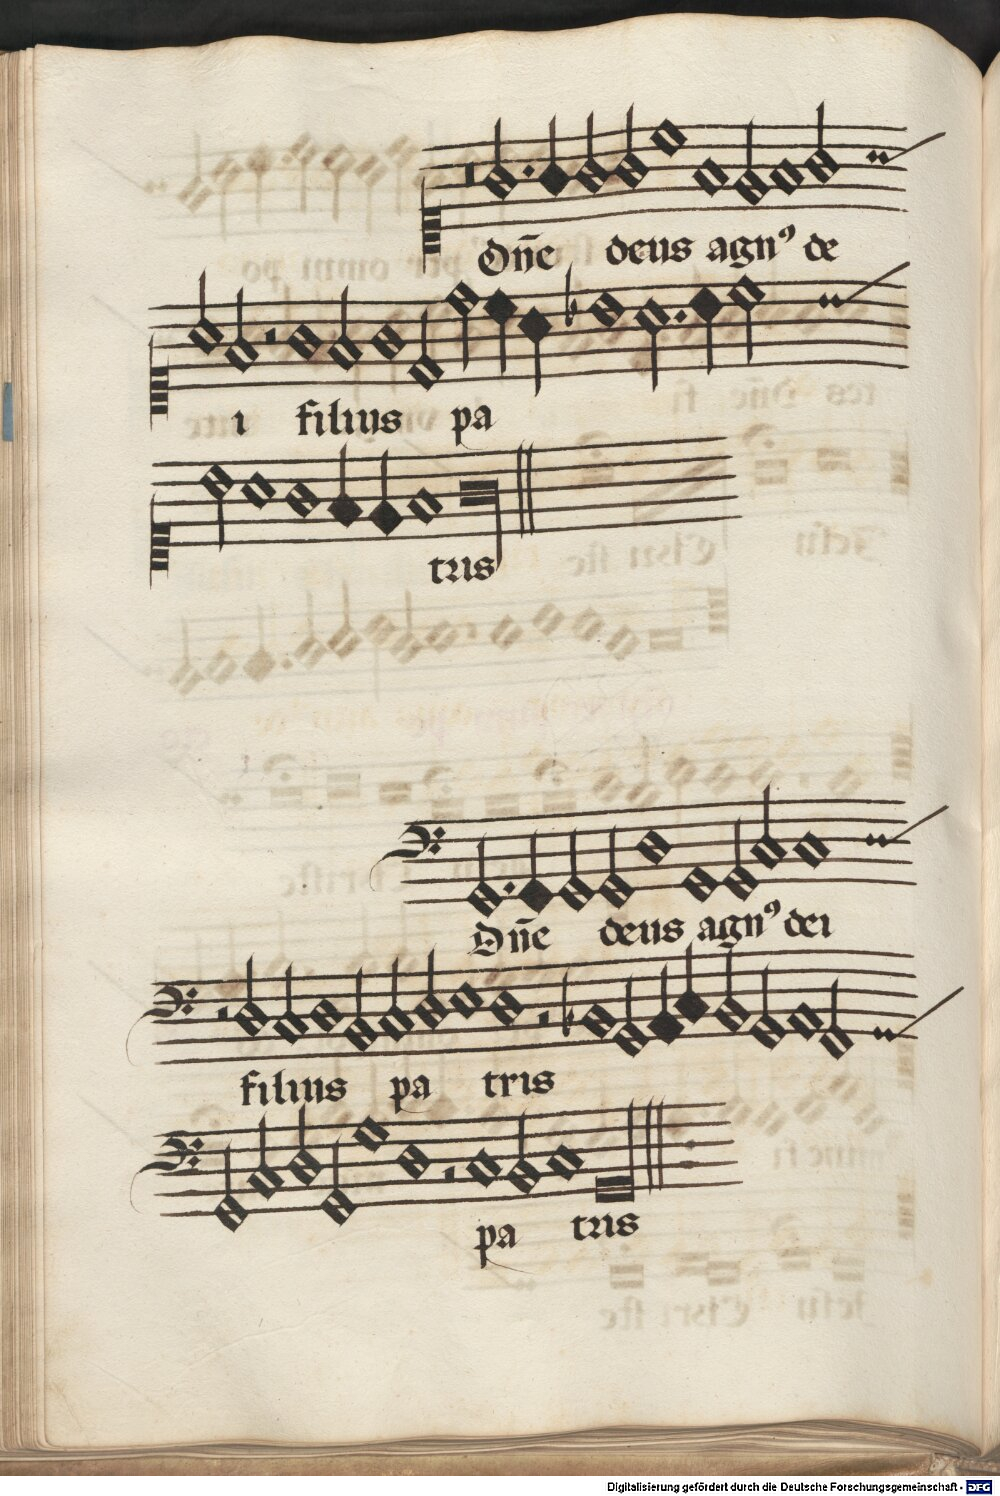 Dn̄e deus agnꝰ de
i filius pa
tris
Dn̄e deus agnꝰ dei
filius pa tris
pa tris
Digitalisierung gefördert durch die Deutsche Forschungsgemeinschaft - DFG